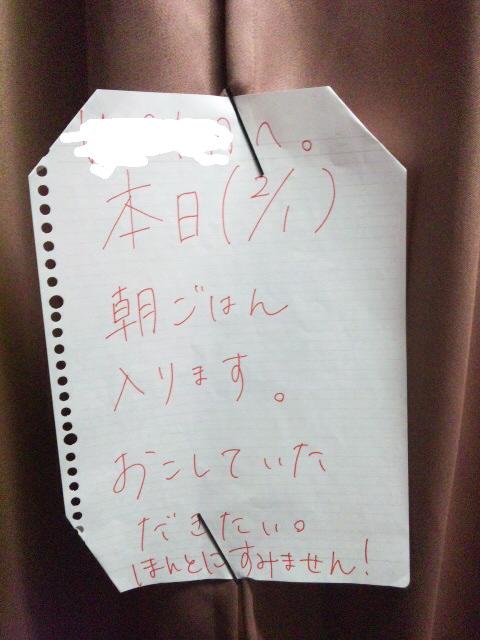 へ。
本日(2/1)
朝ごはん
入ります。
おこしていた
だきたい。
ほんとにすみません!